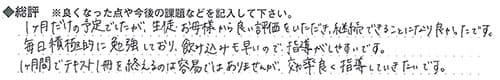 ◆総評 ※良くなった点や今後の課題などを記入して下さい。
1ヶ月だけの予定でしたが、生徒・お母様から良い評価をいただき、継続できることになり良かったです。
毎日積極的に勉強しており、飲み込みも早いので、指導がしやすいです。
1ヶ月間でテキスト1冊を終えるのは容易ではありませんが、効率良く指導していきたいです。